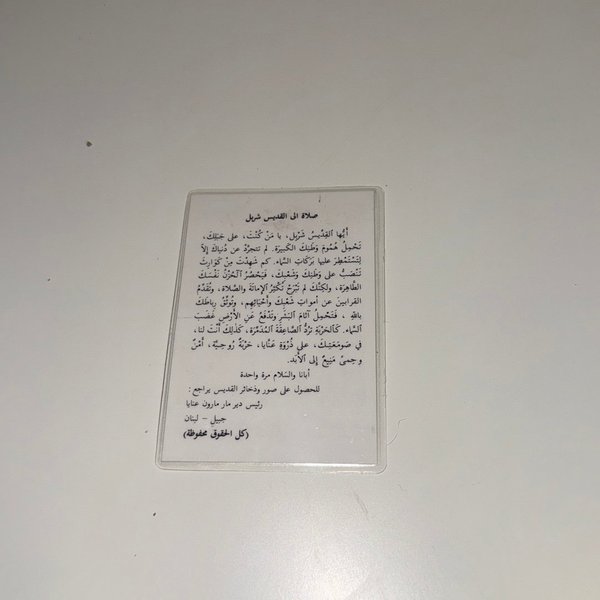 صلاة الى القديس شربل
أَيُّها ٱلقِدِّيسُ شَرْبِل، يا مَنْ كُنْتَ، على جَبَلِكَ،
تَحْمِلُ هُمُومَ وَطَنِكَ الكَبِيرَة. لم تتجرَّدْ عن دُنياكَ إلاَّ
لِتَسْتَمْطِرَ عليها بَرَكاتِ السَّماء. كم شَهِدْتَ مِنْ كَوارِثَ
تَنْصَبُّ على وَطَنِكَ وشَعْبِكَ، فَيَعْصُرُ ٱلحُزْنُ نَفْسَكَ
الطَّاهِرَة، ولكِنَّكَ لم تَبْرَحْ تُكْثِرُ الإِماتَةَ والصَّلاة، وتُقَدِّمُ
القرابينَ عن أمواتِ شَعْبِكَ وأَحْيائِهِم، وتُوثِّقُ رِباطَكَ
بالله ، فَتَحْمِلُ آثامَ البَشَرِ وتَدْفَعُ عَنِ الأَرْضِ غَضَبَ
السَّماء. كَٱلحَرْبَةِ تَرُدُّ الصَّاعِقَةَ ٱلمُدَمِّرَة، كَذلِكَ أَنْتَ لنا،
في صَومَعَتِكَ، على ذُرْوَةِ عَنَّايا، حَرْبَةٌ رُوحِيَّة، أَمْنٌ
وحِمىً مَنِيعٌ إلى الأَبَد.
أبانا والسّلام مرة واحدة
للحصول على صور وذخائر القديس يراجع :
رئيس دير مار مارون عنايا
جبيل – لبنان
(كل الحقوق محفوظة)